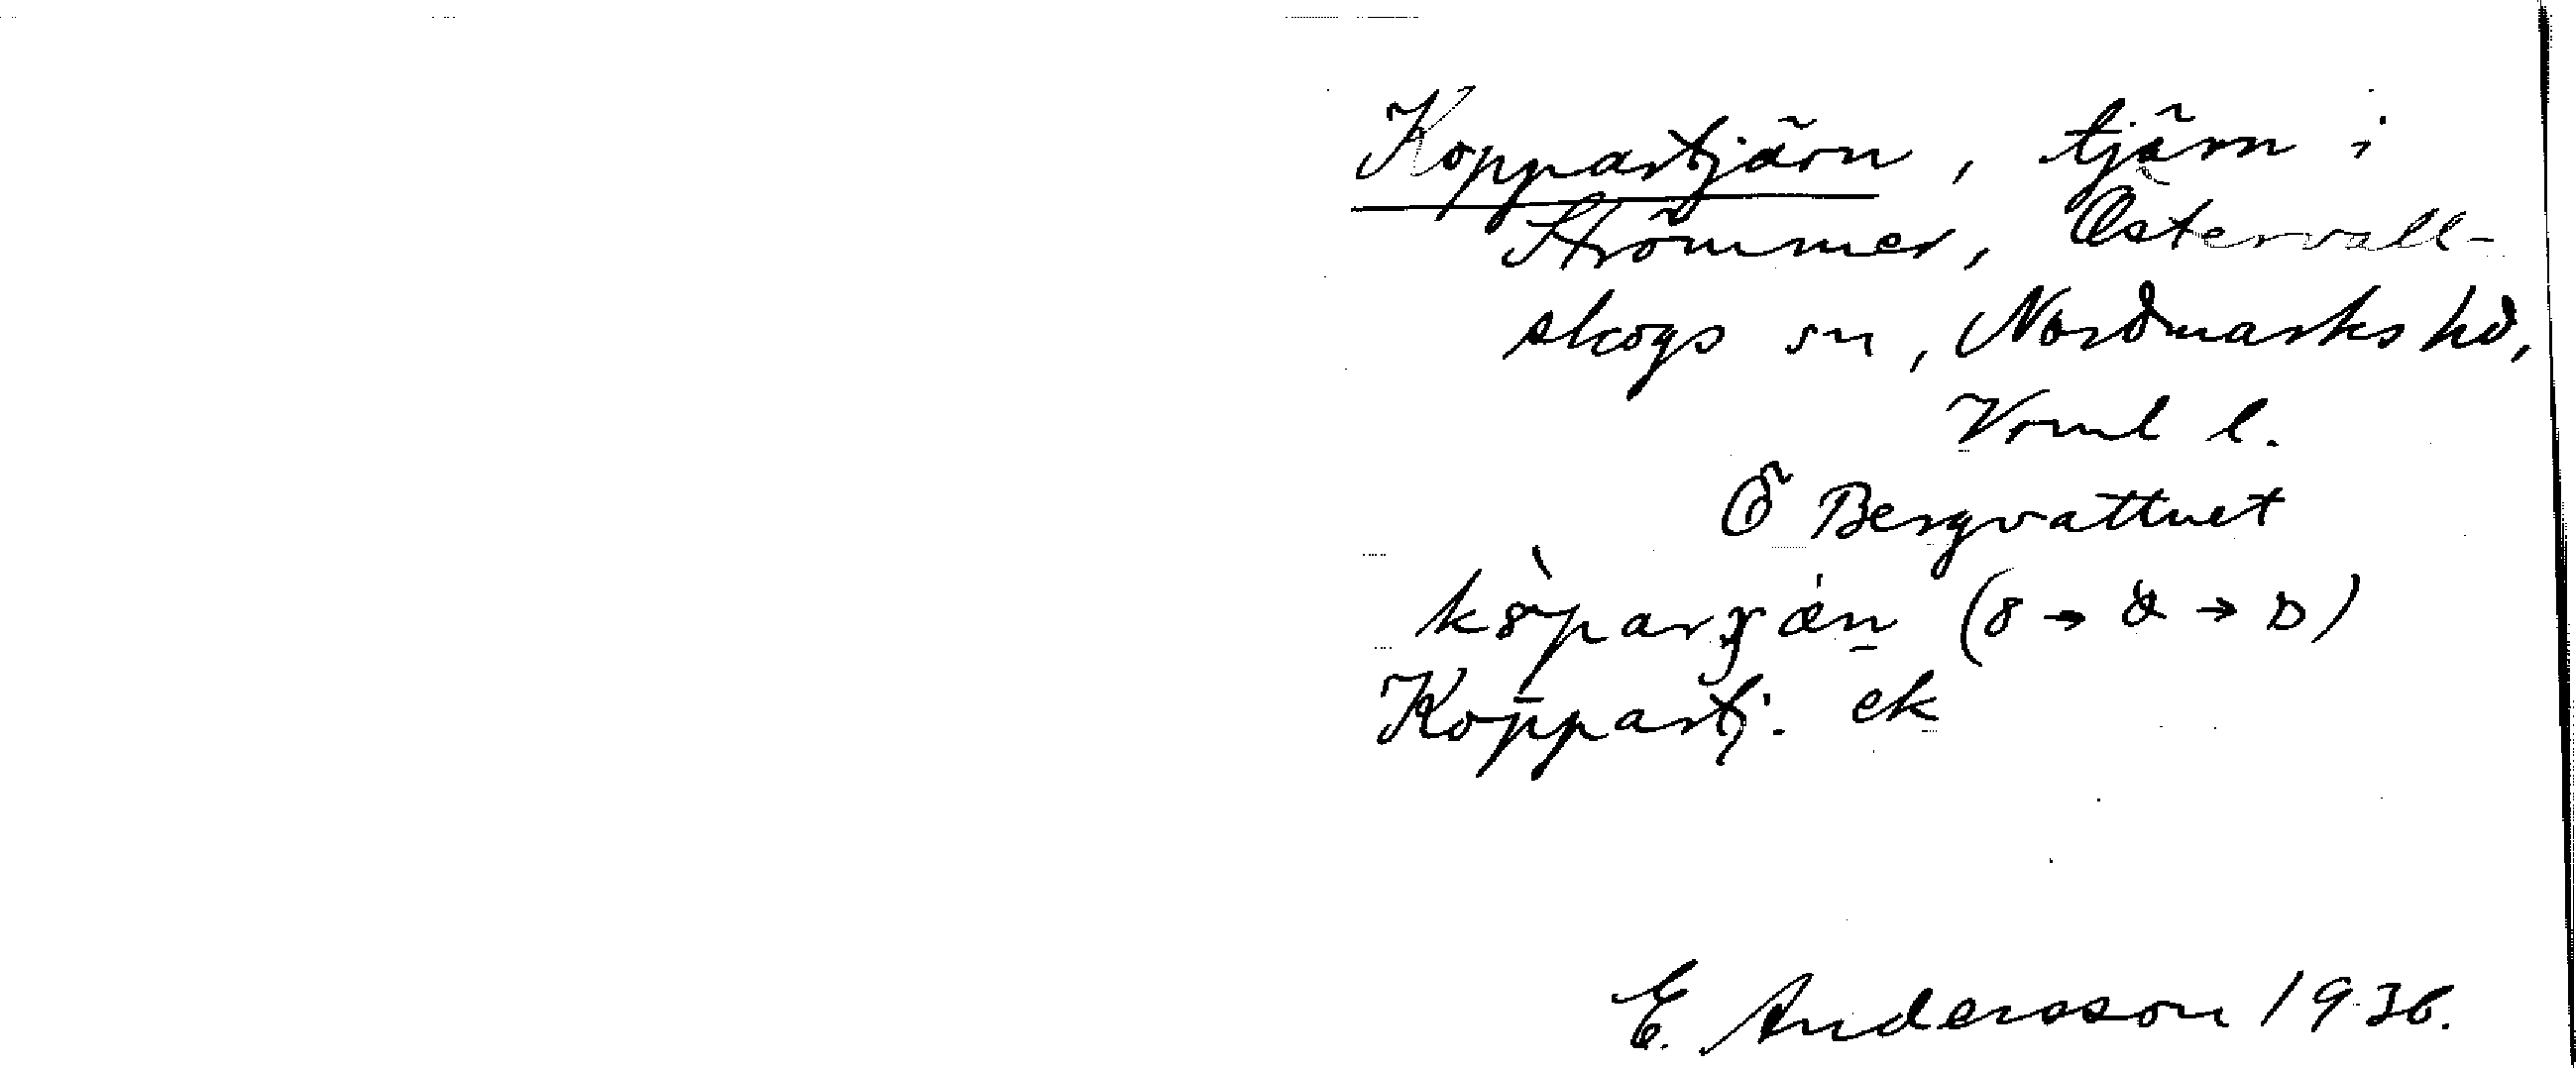 Koppartjärn, tjärn i
Strömmer, Östervall-
skogs sn, Nordmarks hd,
Vrml l.
Ö Bergvattnet
(8 → →
Koppartj. ek
E. Andersson 1936.